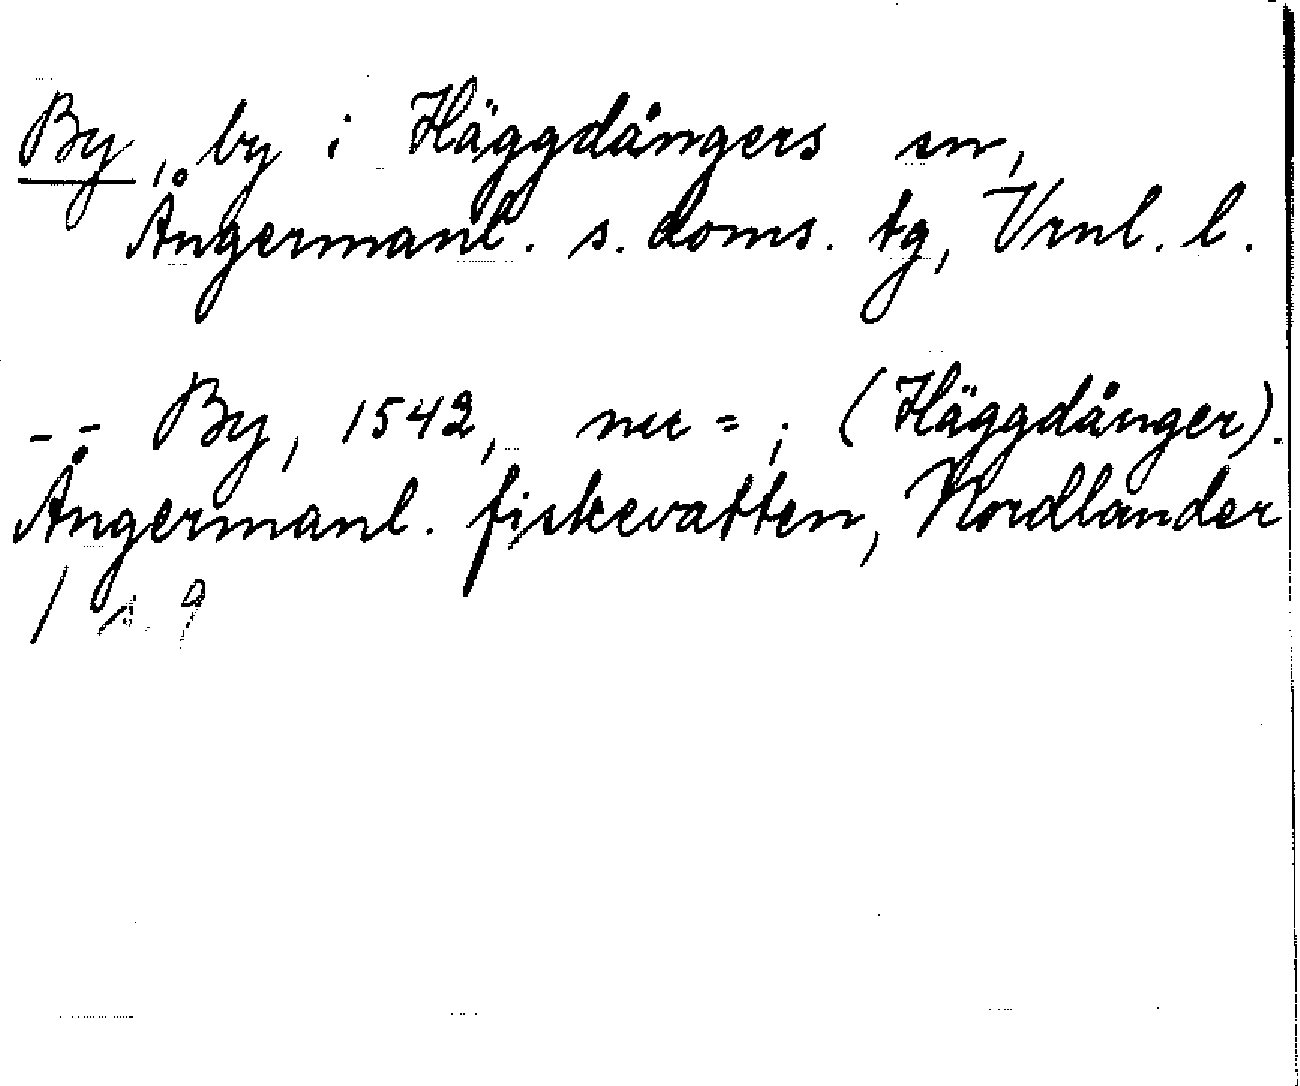 By, by i Häggdångers sn,
Ångermanl. s. doms. tg, Vrnl. l.
-- By, 1542, nu = ; (Häggdånger).
Ångermanl. fiskevatten, Nordlander
/ s. 9